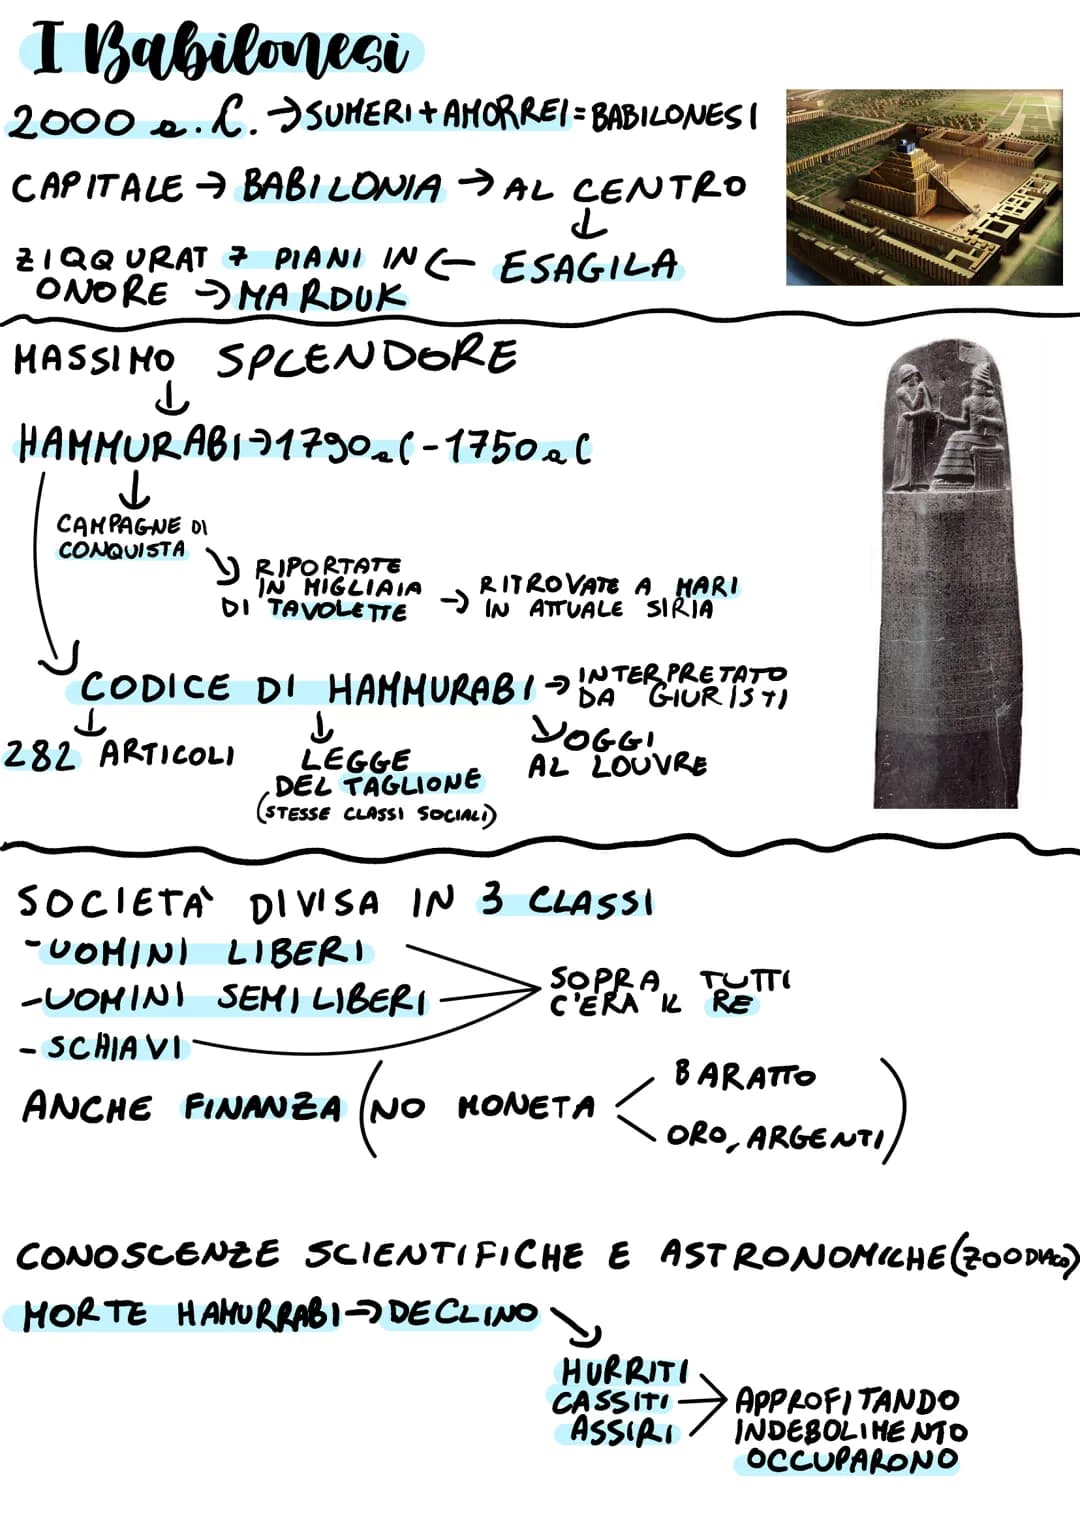 I Babilonesi
2000 a.C. → SUMERI + AMORREI = BABILONESI
CAPITALE → BABILONIA → AL CENTRO
↓
ZIQQURAT 7 PIANI IN ← ESAGILA
ONORE → MARDUK
MASSIMO SPLENDORE
↓
HAMMURABI → 1790 a C - 1750 a C
↓
CAMPAGNE DI
CONQUISTA
RIPORTATE
IN MIGLIAIA
DI TAVOLETTE
→ RITROVATE A MARI
IN ATTUALE SIRIA
CODICE DI HAMMURABI → INTERPRETATO
DA GIURISTI
282 ARTICOLI
LEGGE
DEL TAGLIONE
(STESSE CLASSI SOCIALI)
OGGI
AL LOUVRE
SOCIETA' DIVISA IN 3 CLASSI
- UOMINI LIBERI
- UOMINI SEMILIBERI
- SCHIAVI
SOPRA TUTTI
C'ERA IL RE
ANCHE FINANZA (NO MONETA
BARATTO
ORO, ARGENTI)
CONOSCENZE SCIENTIFICHE E ASTRONOMICHE (ZOODIACO)
MORTE HAMURRABI → DECLINO
HURRITI
CASSITI
ASSIRI
APPROFITANDO
INDEBOLIMENTO
OCCUPARONO